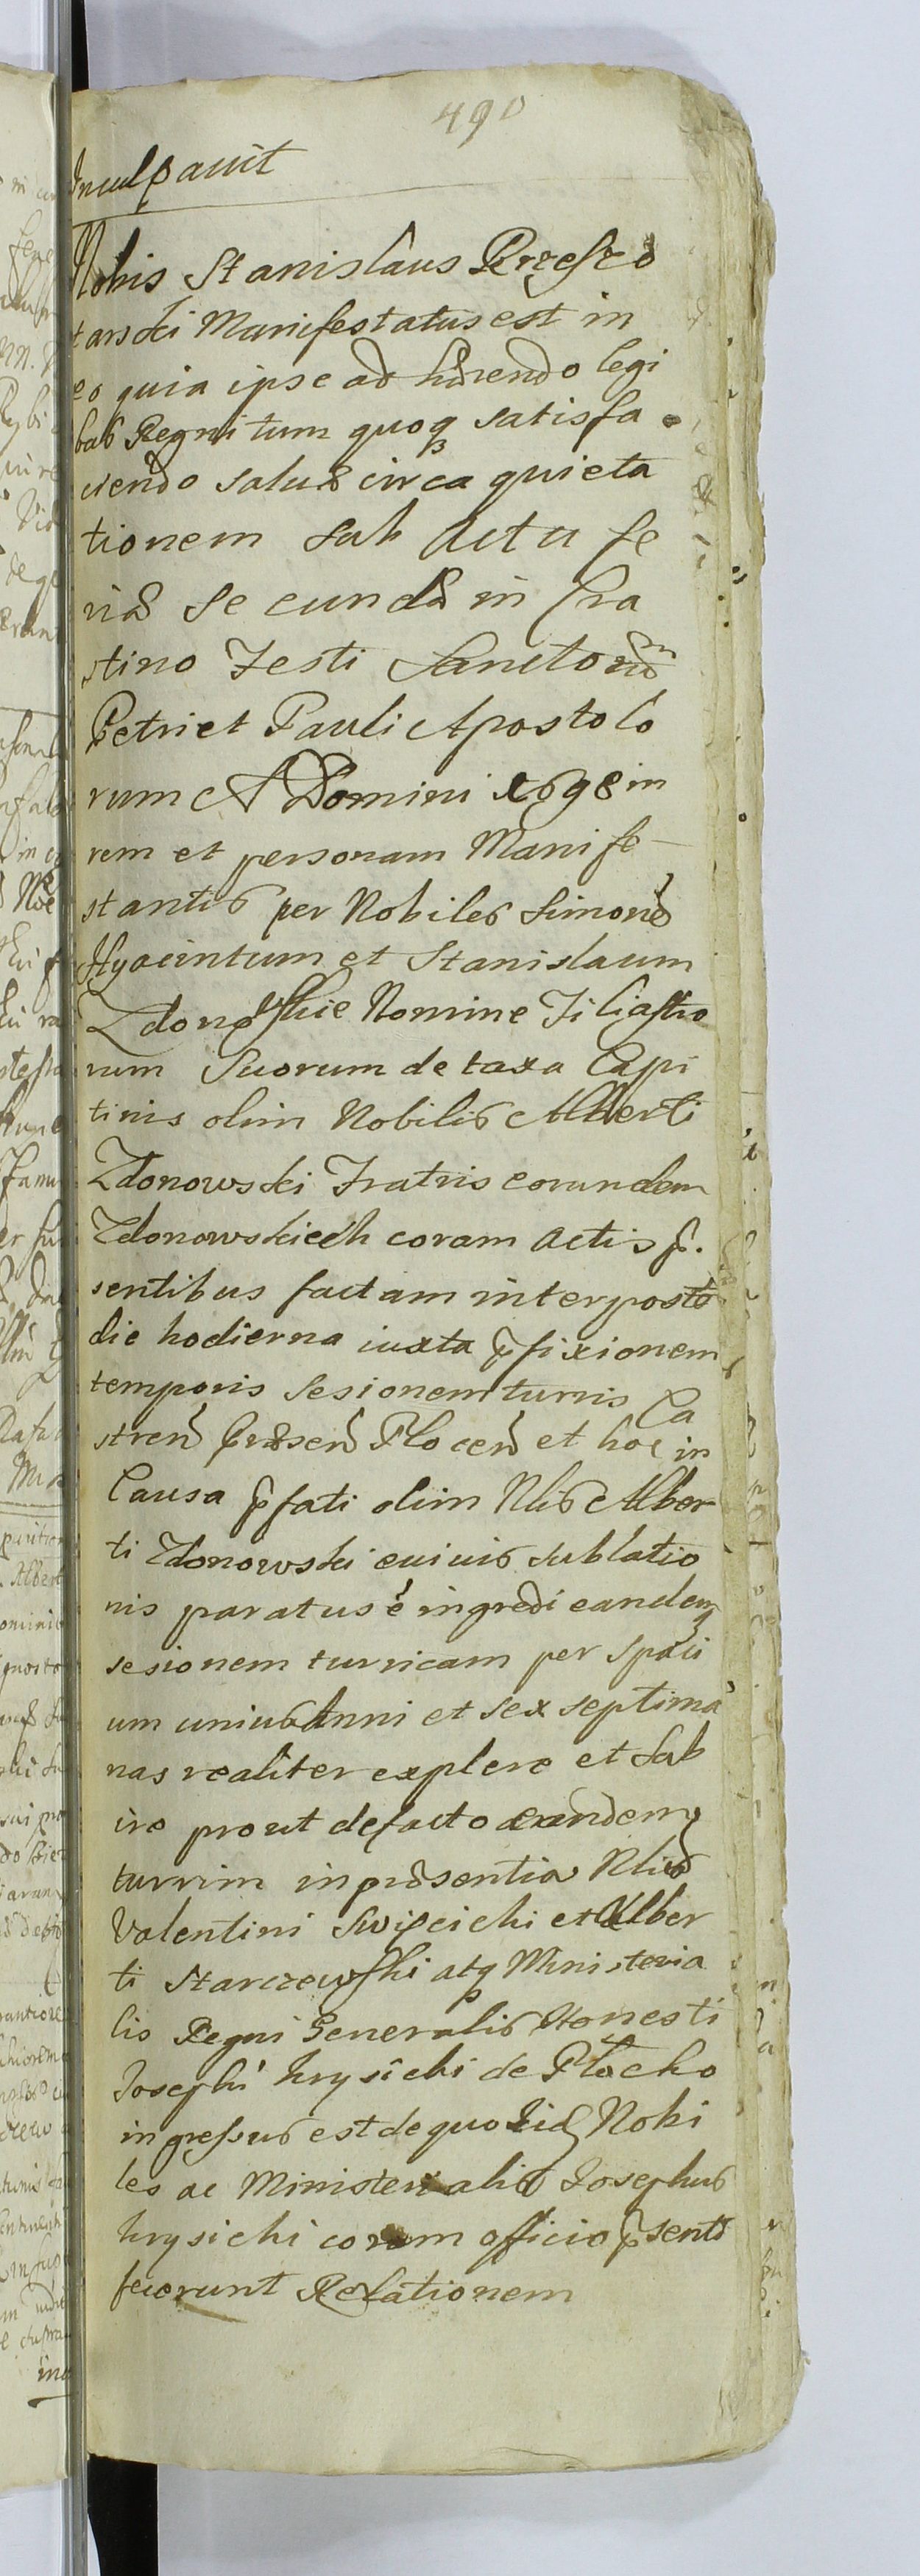 490
Inculpavit
Nobis Stanislaus Przeszo
tarski Manifestatus est in
eo quia ipse adhærendo legi
bus Regni tum quoq satisfa
ciendo salvæ circa quieta
tionem sub Actu fe
riæ secundæ in Cra
stino Festi Sanctorum
Petri et Pauli Apostolo
rum A Domini 1698 in
rem et personam Manife
stantis per Nobiles Simonē
Hyacintum et Stanislaum
Zdonowskie Nomine Filiastro
rum Suorum de taxa Capi
tinis olim Nobilis Alberti
Zdonowski Fratris eorundem
Zdonowskich coram Actis p.
sentibus factam interposita
die hodierna iuxta pfixionem
temporis sesionem turris Ca
stren præsen Plocen et hoc in
Causa pfati olim Nlis Alber
ti Zdonowski cuius sublatio
nis paratus ē ingredi eandem
sesionem turricam per spati
um unius Anni et sex septima
nas realiter explere et sub
ire prout defacto eandem
turrim in præsentia Nliū
Valentini Swięcicki et Alber
ti Starczewski atq Ministeria
lis Regni Generalis Honesti
Josephi krysicki de Płocko
ingressus est de quo iid Nobi
les ac Ministerialis Josephus
krysicki coram officio psenti
fecerunt Relationem